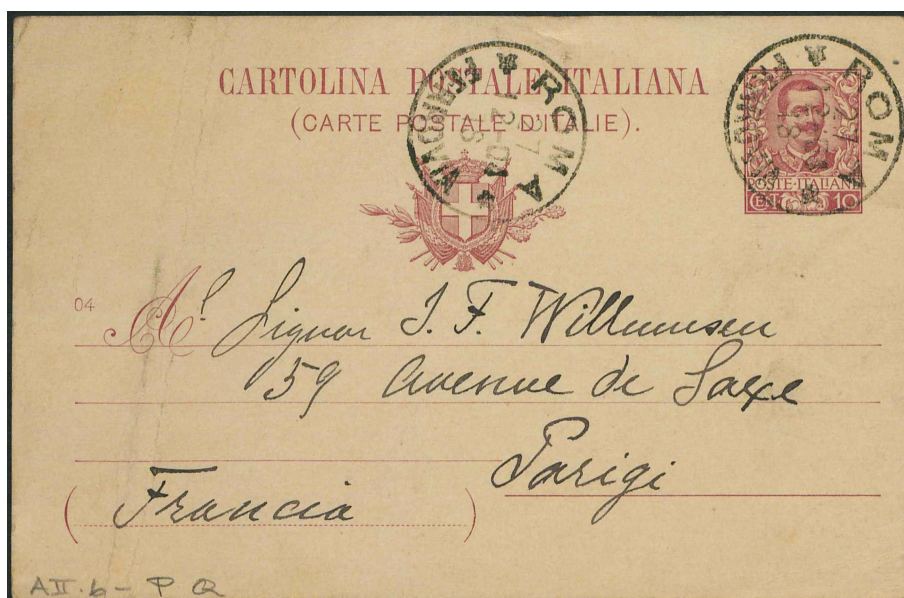 CARTOLINA POSTALE ITALIANA
(CARTE POSTALE D'ITALIE).
ROMA
ROMA
POSTE·ITALIANE
CEN. 10
04
Al Signor J. F. Willumsen
59 Avenue de Saxe
Parigi
(Francia)
AII.b - P Q